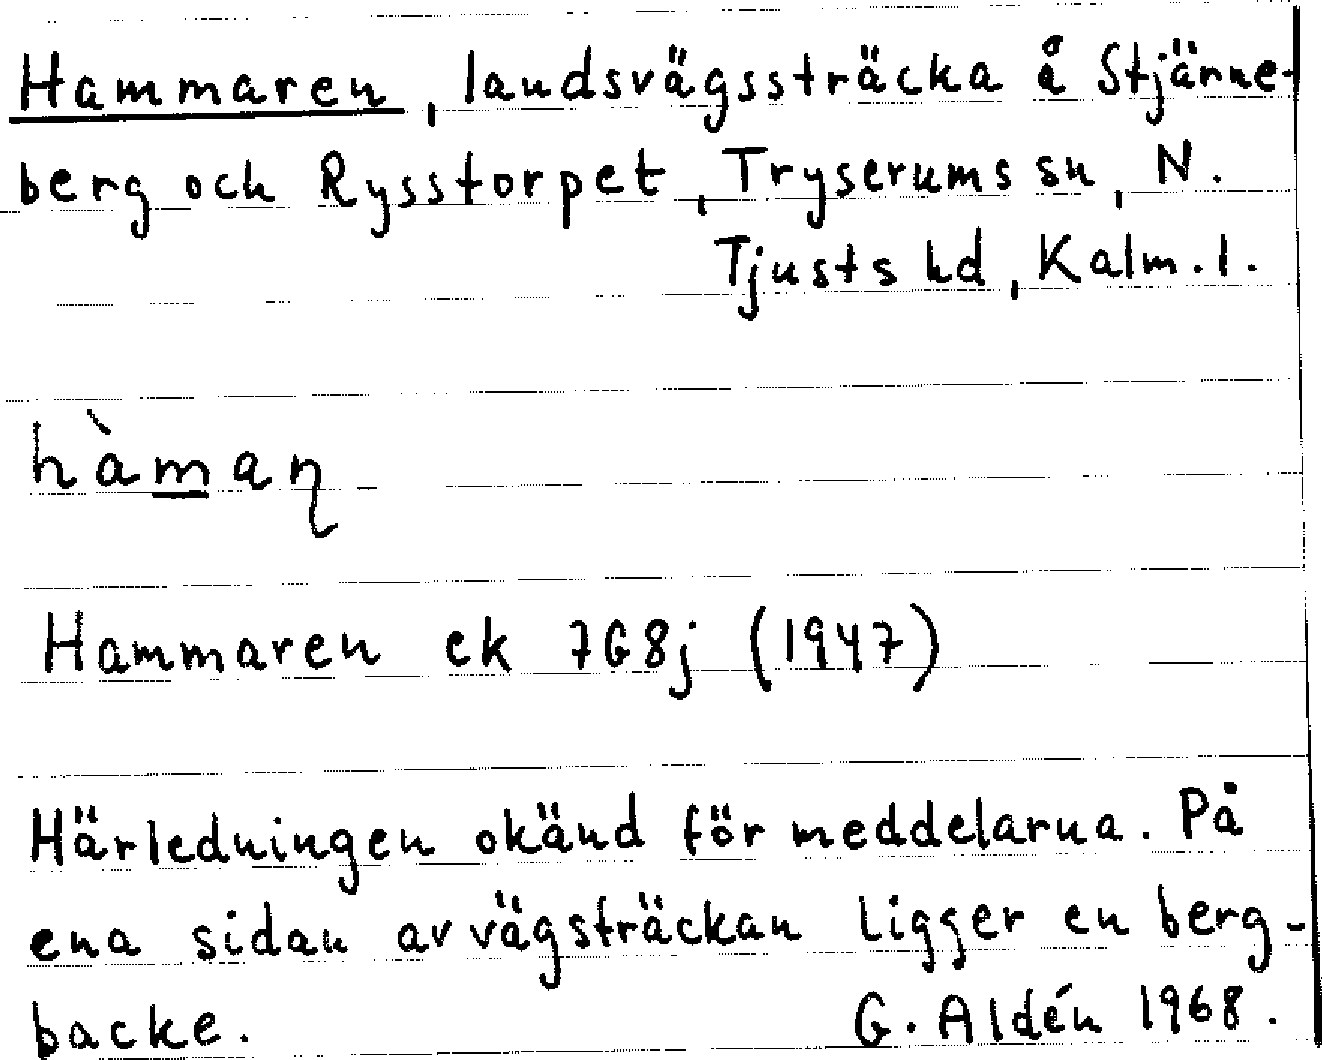 Hammaren, landsvägssträcka å Stjärne-
berg och Rysstorpet, Tryserums sn, N.
Tjusts hd, Kalm. l.
hàmaɳ
Hammaren ek 7G8j (1947)
Härledningen okänd för meddelarna. På
ena sidan av vägsträckan ligger en berg-
backe. G. Aldén 1968.